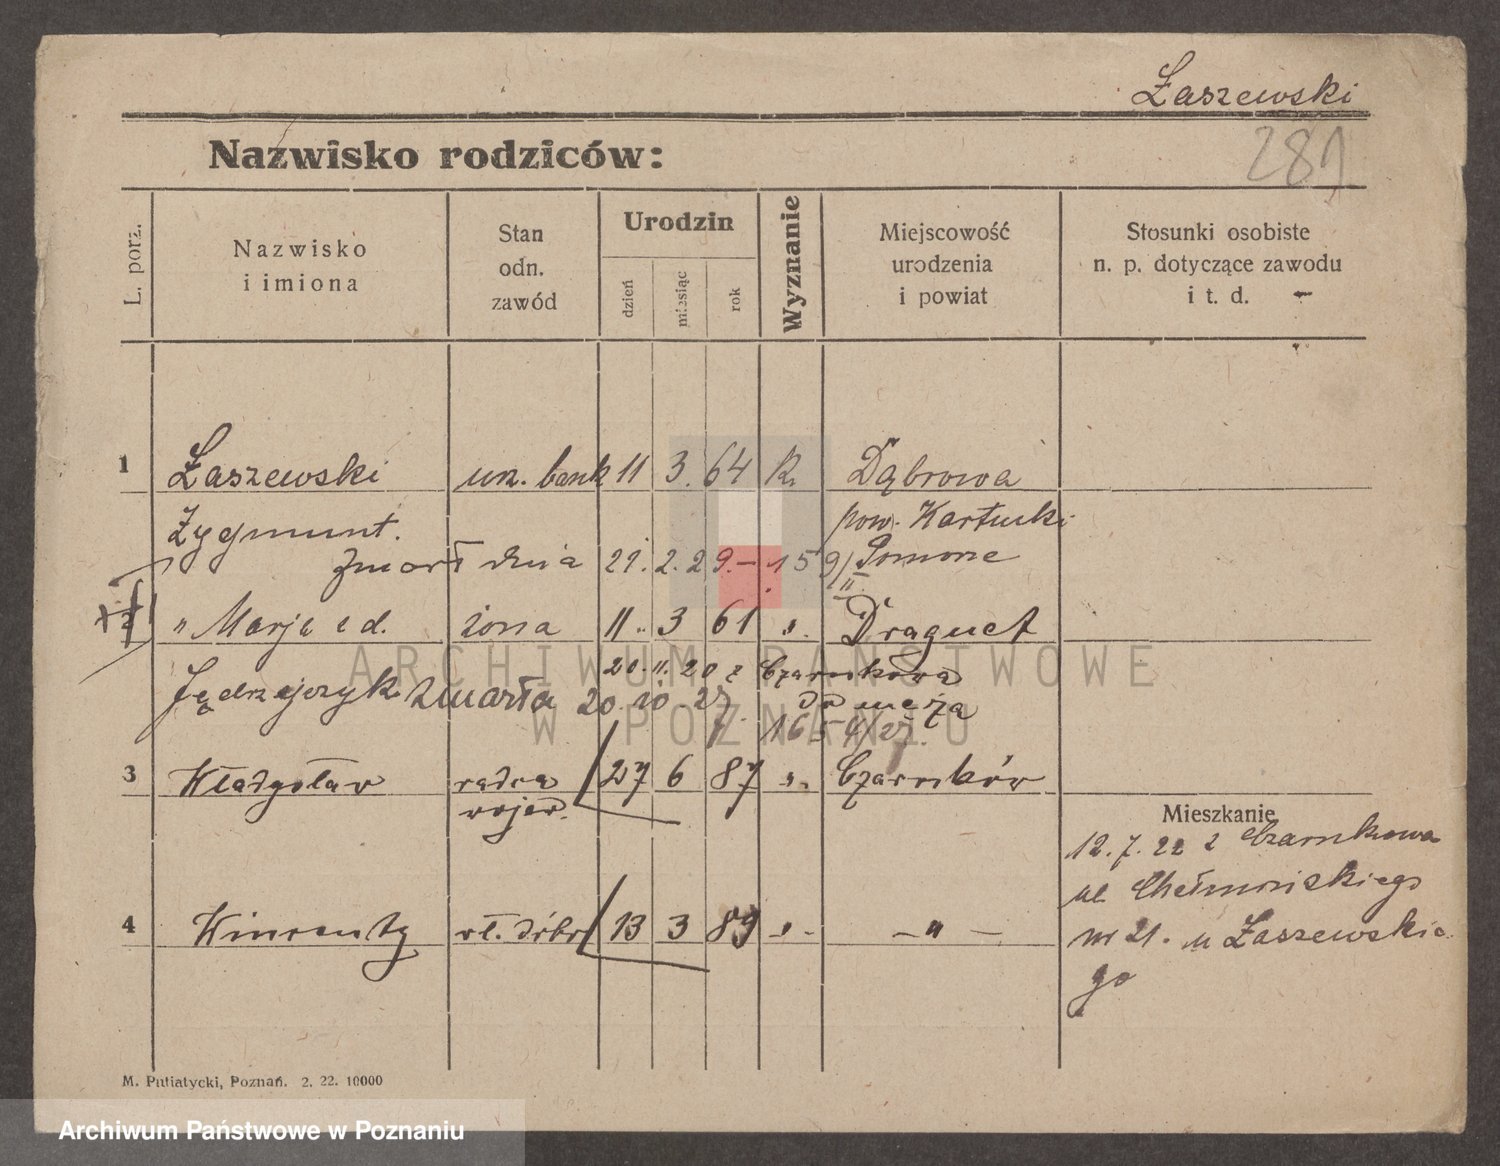 Łaszewski
281
Nazwisko rodziców:
L. porz.
Nazwisko
i imiona
Stan
odn.
zawód
Urodzin
dzień
miesiąc
rok
Wyznanie
Miejscowość
urodzenia
i powiat
Stosunki osobiste
n. p. dotyczące zawodu
i t. d.
1 Łaszewski urz. bank 11 3. 64 Dąbrowa
Zygmunt. pow. Kartuski
zmarł dnia 21. 2. 29.– 159/II Pomorze
" Marja z d. żona 11. 3 61 ". Draguet
20. 11. 20 z Czarnkowa
Jędrzejczyk zmarła 20. 10. 27. do męża
165 9/27.
3 Władysław radca 27 6 87 ". Czarnków
wojew.
4 Wincenty wł. dóbr 13 3 89 ". – " –
Mieszkanie
12. 7. 22 z Czarnkowa
ul Chełmońskiego
nr 21. u Łaszewskie
go
M. Putiatycki, Poznań. 2. 22. 10000
ARCHIWUM PAŃSTWOWE
W POZNANIU
Archiwum Państwowe w Poznaniu